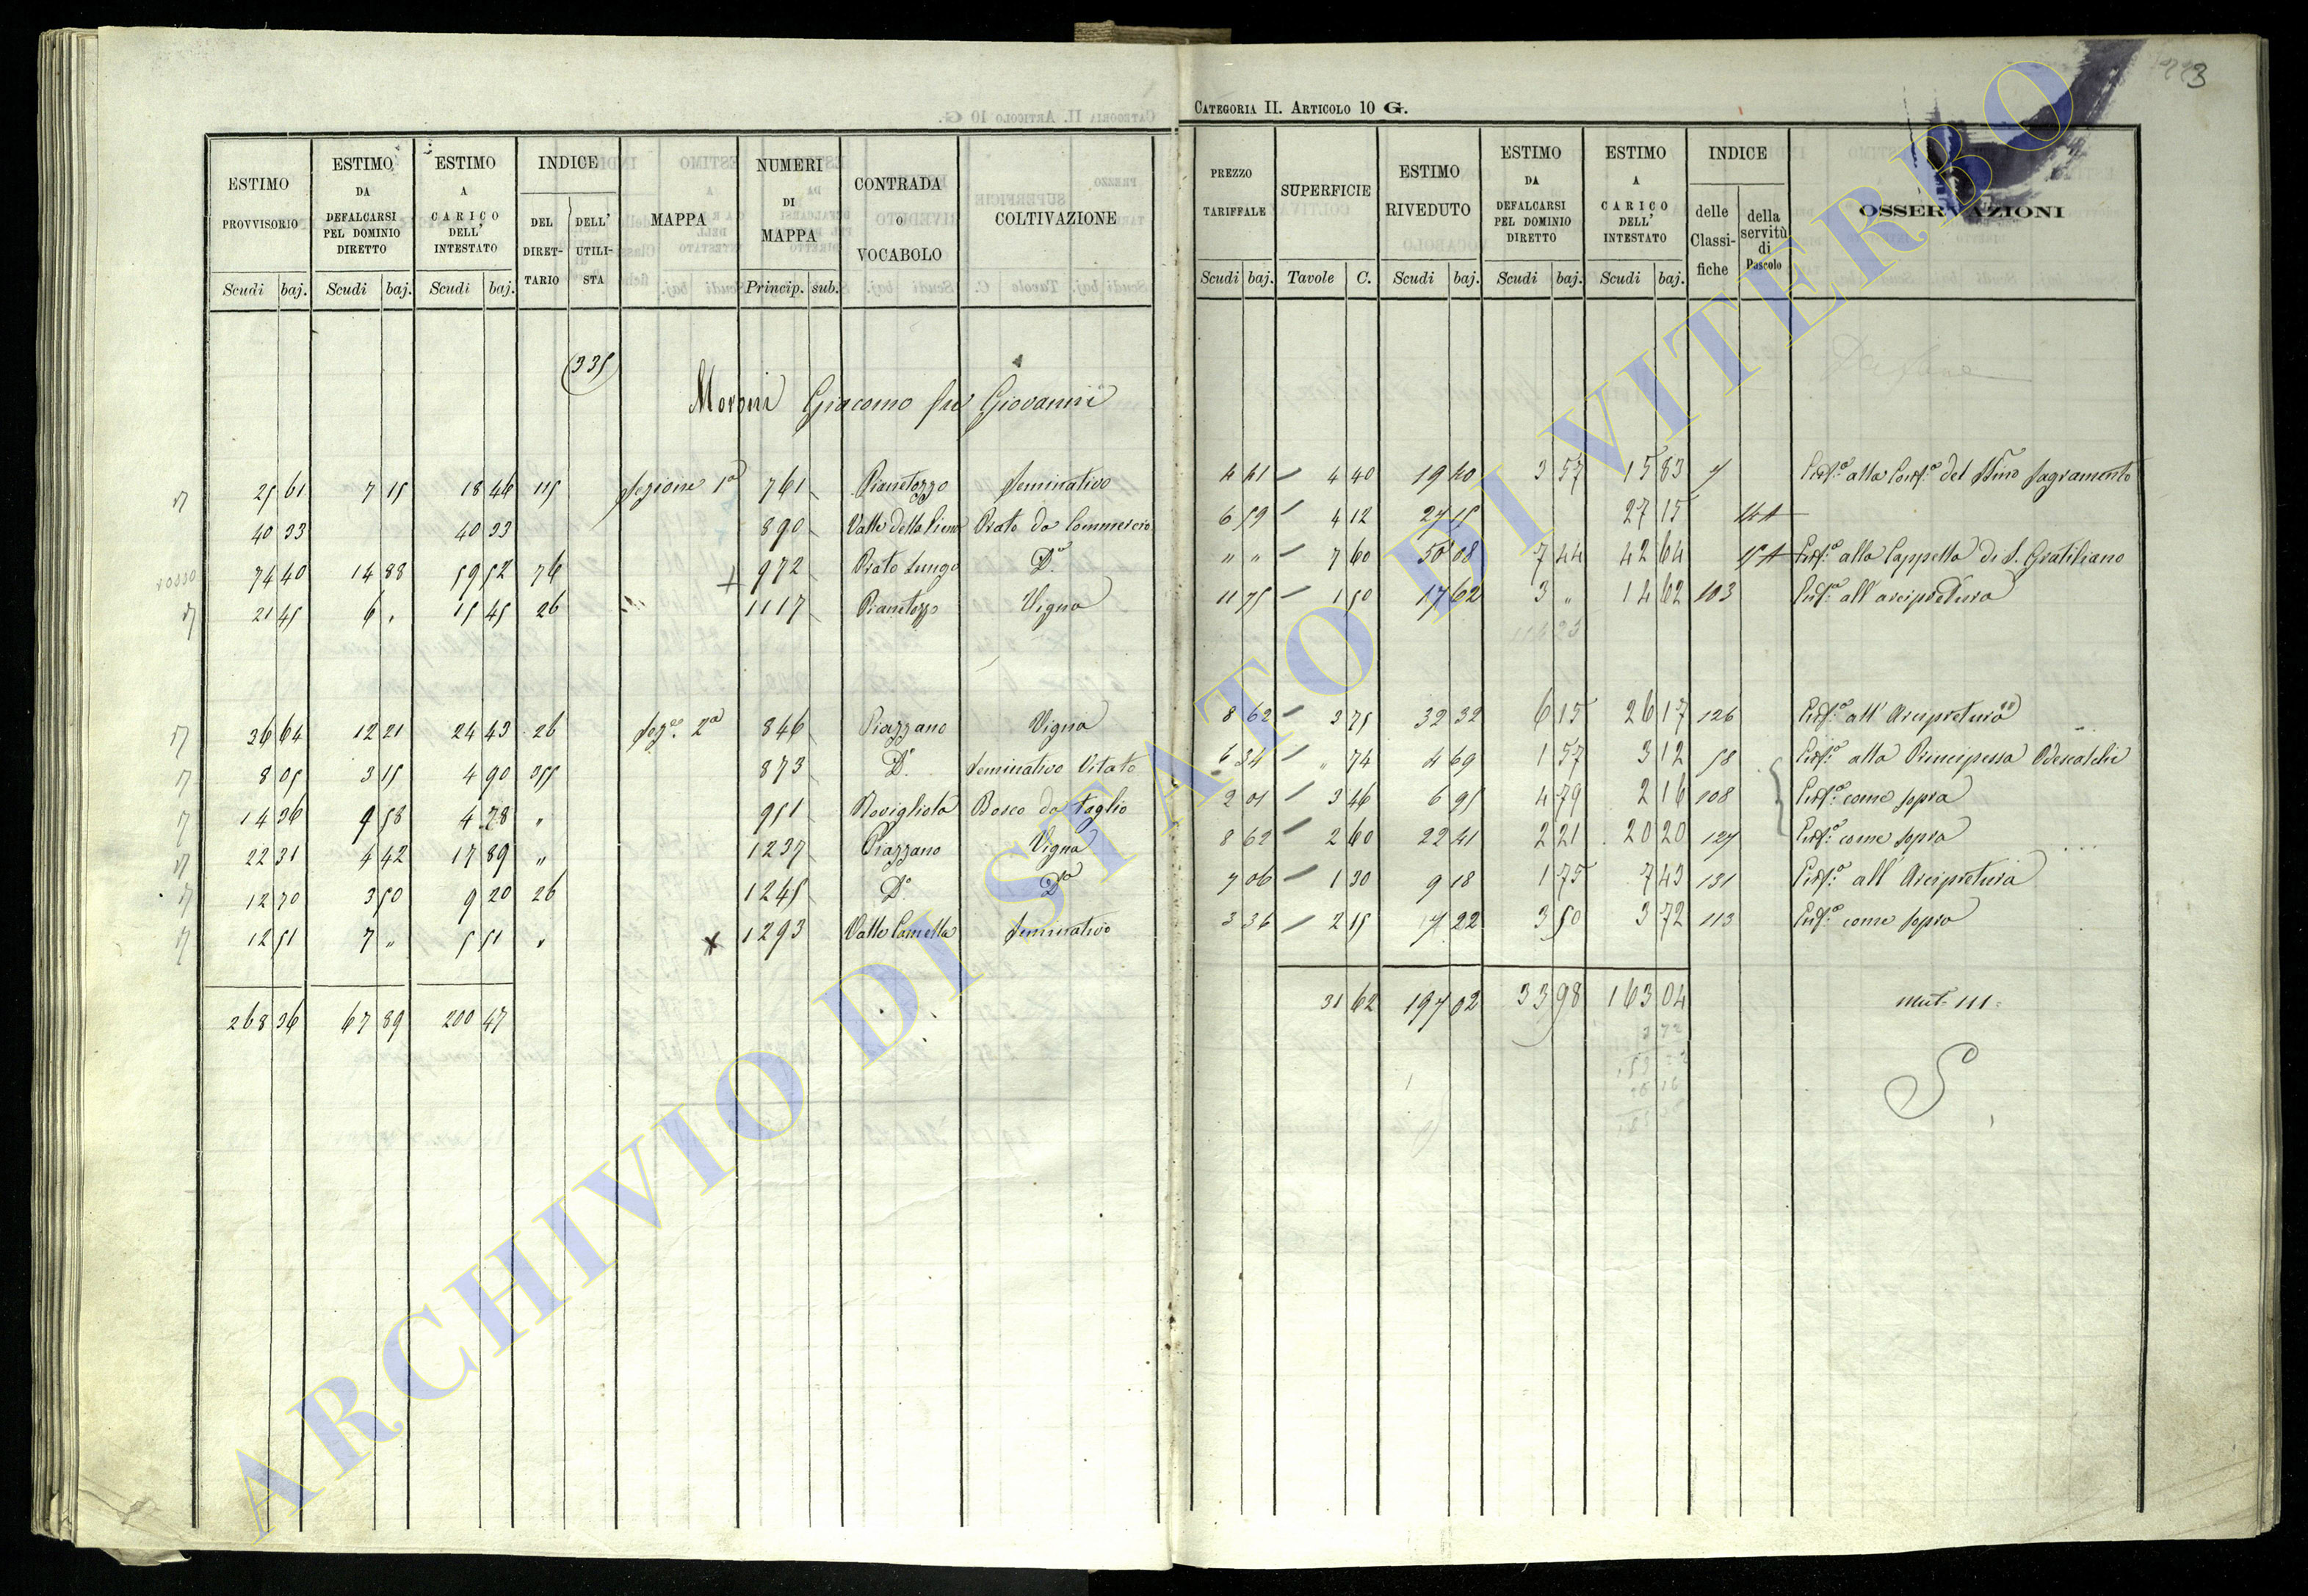 CATEGORIA II. ARTICOLO 10 G.
ESTIMO PROVVISORIO | ESTIMO DA DEFALCARSI PEL DOMINIO DIRETTO | ESTIMO A CARICO DELL' INTESTATO | INDICE DEL DIRETTARIO | DELL' UTILISTA | MAPPA | NUMERI DI MAPPA | CONTRADA O VOCABOLO | COLTIVAZIONE | PREZZO TARIFFALE | SUPERFICIE | ESTIMO RIVEDUTO | ESTIMO DA DEFALCARSI PEL DOMINIO DIRETTO | ESTIMO A CARICO DELL' INTESTATO | INDICE delle Classifiche | della servitù di Pascolo | OSSERVAZIONI
Scudi baj. | Scudi baj. | Scudi baj. | Princip. sub. | Scudi baj. | Tavole C. | Scudi baj. | Scudi baj. | Scudi baj.
335
Giacomo fu Giovanni
25 61 | 7 15 | 18 46 | 115 | Sezione 1a | 761 | Pianetozzo | Seminativo | 4 41 | 4 40 | 19 40 | 3 57 | 15 83 | 7 | alla del Ssmo Sagramento
40 33 | 40 33 | 890 | Valle della | Prato da Commercio | 6 59 | 4 12 | 27 15 | 27 15 | 14 A
rosso | 74 40 | 14 88 | 59 52 | 76 | + 972 | Prato Lungo | Do. | " " | 7 60 | 50 08 | 7 44 | 42 64 | 15 A | alla Cappella di S. Gratiliano
21 45 | 6 " | 15 45 | 26 | 1117 | Pianetozzo | Vigna | 11 75 | 1 50 | 17 62 | 3 " | 14 62 | 103 | all' arcipretura
36 64 | 12 21 | 24 43 | 26 | Sezne. 2a | 846 | Piazzano | Vigna | 8 62 | 3 75 | 32 32 | 6 15 | 26 17 | 126 | all' Arcipretura
8 05 | 3 15 | 4 90 | 355 | 873 | Do. | Seminativo Vitato | 6 34 | " 74 | 4 69 | 1 57 | 3 12 | 58 | alla Principessa Odescalchi
14 36 | 9 58 | 4 78 | " | 951 | Rovigliola | Bosco da taglio | 2 01 | 3 46 | 6 95 | 4 79 | 2 16 | 108 | come sopra
22 31 | 4 42 | 17 89 | " | 1237 | Piazzano | Vigna | 8 62 | 2 60 | 22 41 | 2 21 | 20 20 | 127 | come sopra
12 70 | 3 50 | 9 20 | 26 | 1245 | Do. | Da | 7 06 | 1 30 | 9 18 | 1 75 | 7 43 | 131 | all' Arcipretura
12 51 | 7 " | 5 51 | " | x 1293 | Valle Camella | Seminativo | 3 36 | 2 15 | 7 22 | 3 50 | 3 72 | 113 | come sopra
268 36 | 67 89 | 200 47 | 31 62 | 197 02 | 33 98 | 163 04
S
ARCHIVIO DI STATO DI VITERBO